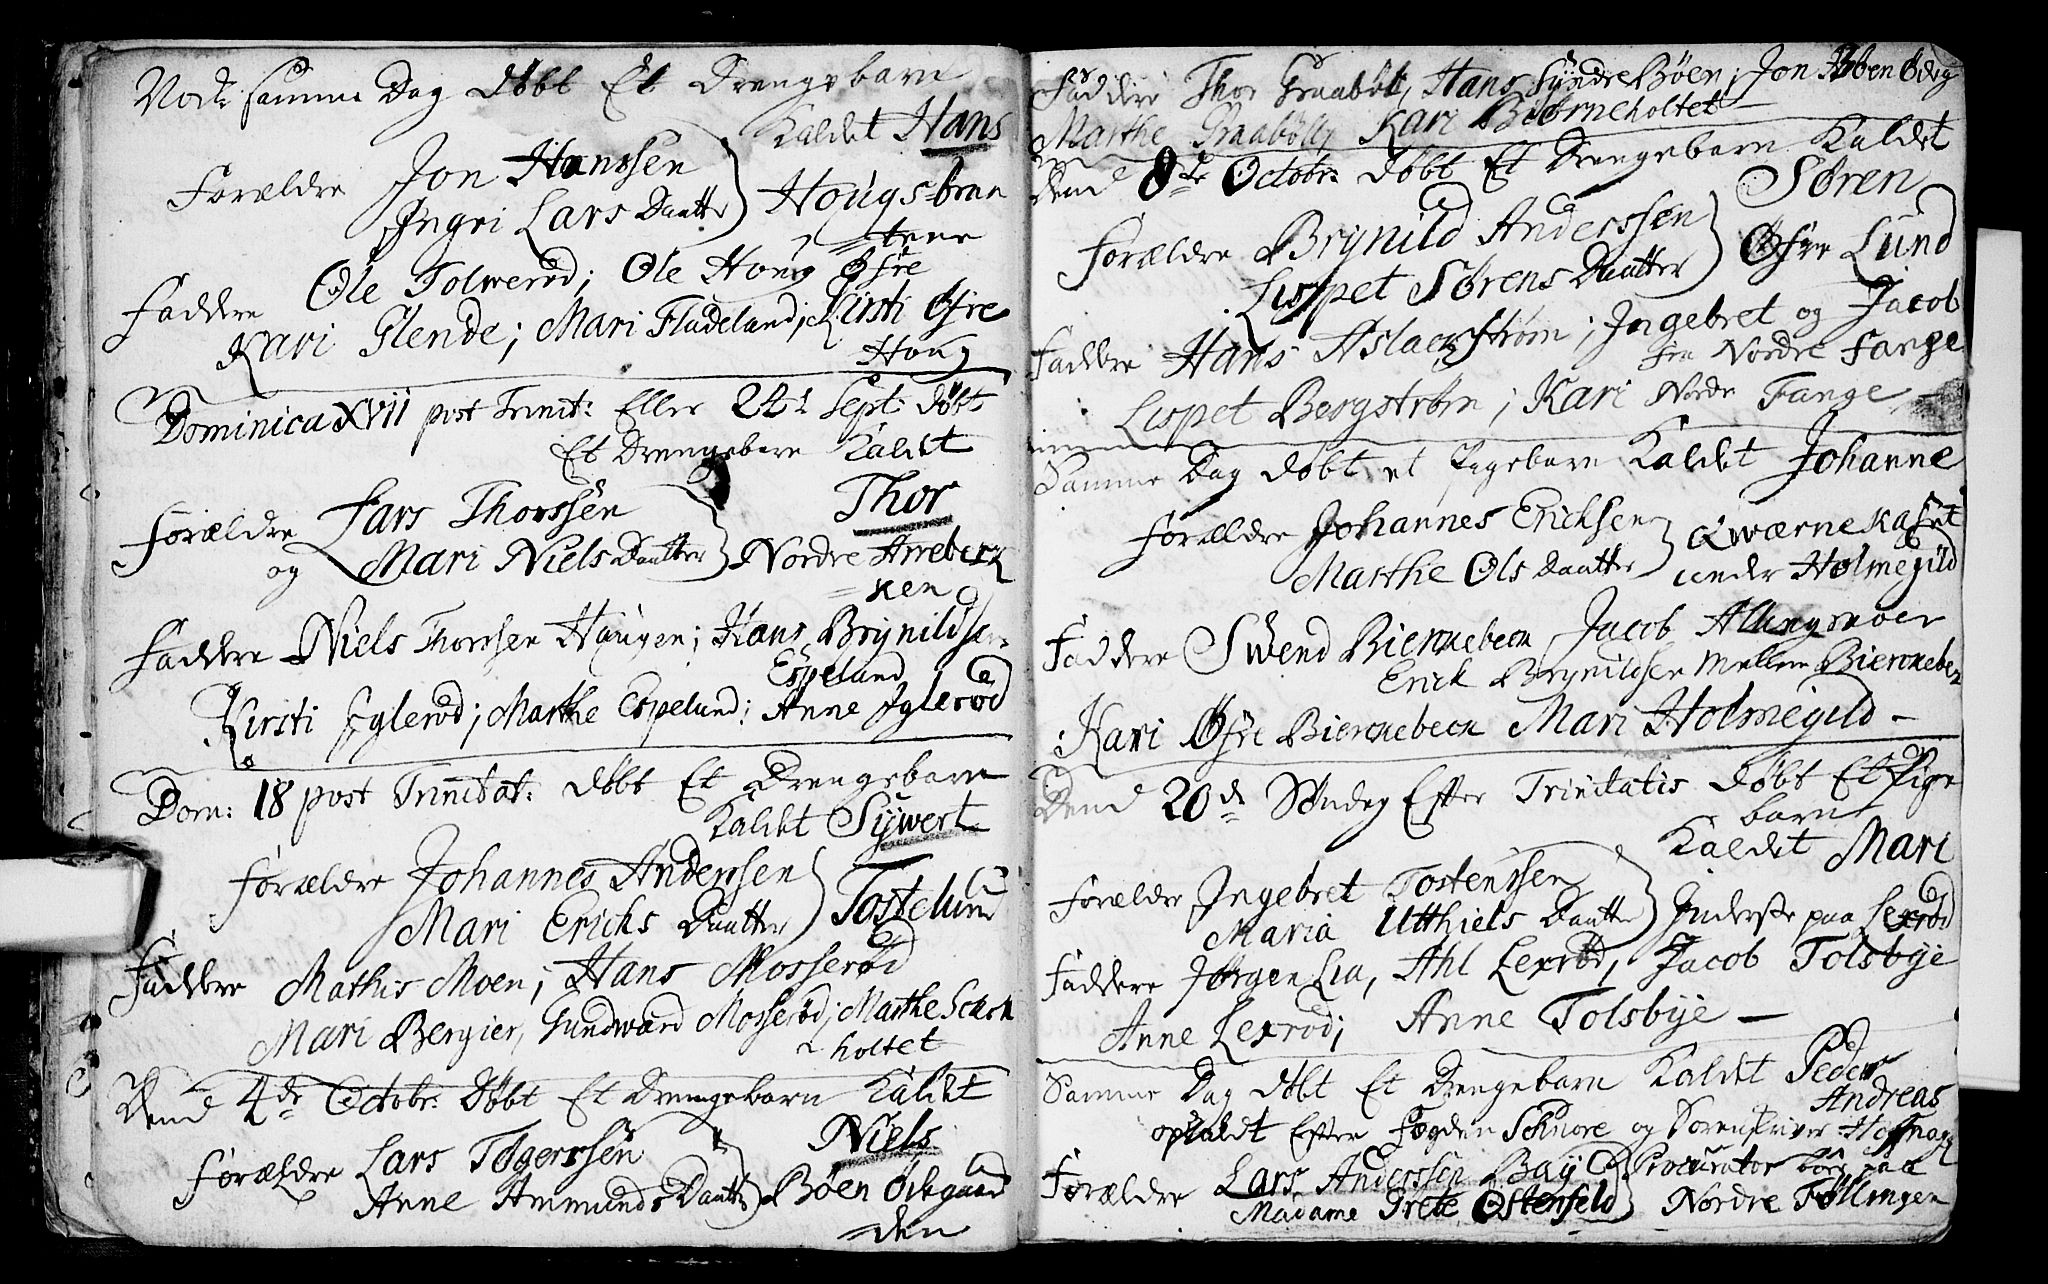 Nock samme Dag Døbt Et Drengebarn
Kaldet Hans
Forældre Jon Hanssen
Ingri Lars Daatter Hougs-braa
=tene
Faddere Ole Tolwerød; Ole Houg Øfre
Kari Glende; Mari Fladeland; Kirsti Øfre
Houg
Dominica XVII post Trinit: Eller 24de Sept: døbt
Et Drengebarn Kaldet
Thor
Forældre Lars Thorssen
og Mari Niels Daatter Nordre Arrebeck
=ken
Faddere Niels Thorssen Haugen; Hans Brynildsen
Espeland
Kirsti Iglerød; Marthe Espelund; Anne Iglerød
Dom: 18 post Trinitat: døbt Et Drengebarn
Kaldet Sywert
Forældre Johannes Anderssen
Mari Ericks Daatter Tostelund
Faddere Mathis Moen; Hans Mosserød
Mari Bergier, Gundward Mosserød; Marthe Scack
holtet
Dend 4de Octobr: Døbt Et Drengebarn Kaldet
Niels
Forældre Lars Togerssen
Anne Ammunds Daatter Bøen Ødegaar
=den
Faddere Thor Graabøll, Hans Syndre Bøen; Jon Ødeg
Marthe Graabøll, Kari Biørneholtet
Dend 8de Octobr: døbt Et Drengebarn Kaldet
Søren
Forældre Brynild Anderssen
Lispet Sørens Daatter Øfre Lund
Faddere Hans Aslackstrøm; Ingebret og Jacob
fra Nordre Fange
Lispet Bergstrøm; Kari Nordre Fange
Samme Dag døbt et Pigebarn Kaldet Johanne
Forældre Johannes Ericksen Qwærnekaset
Marthe Ols Daatter under Holmegild
Faddere Swend Biernebeck Jacob Allingmoen
Erick Brynildsen Mellem Biernebek
Kari Øfre Biernebeck Mari Holmegild
Dend 20de Søndag Efter Trinitatis døbt Et Pige
barn
Kaldet Mari
Forældre Ingebret Tostenssen
Maria Utthiels Daatter Inderste paa Lexrød
Faddere Jørgen Lia, Ahl Lexrød, Jacob Tolsbye
Anne Lexrød; Anne Tolsbye
Samme Dag døbt Et Drengebarn Kaldet Peder
Andreas
opkaldt Efter Fogden Schnore og Sorenskriver
Forældre Lars Anderssen Bay Procurator boer paa
Madame Grete Ostenfeld Nordre Føllingen